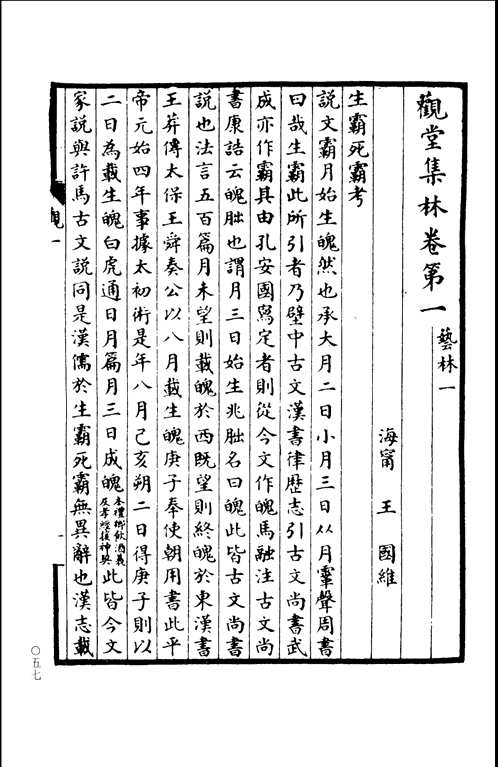 觀堂集林卷第一
藝林一
海甯 王國維
生霸死霸考
說文霸月始生魄然也承大月二日小月三日从月䨣聲周書
曰哉生霸此所引者乃壁中古文漢書律歷志引古文尚書武
成亦作霸其由孔安國寫定者則從今文作魄馬融注古文尚
書康誥云魄朏也謂月三日始生兆朏名曰魄此皆古文尚書
說也法言五百篇月未望則載魄於西既望則終魄於東漢書
王莽傳太保王舜奏公以八月載生魄庚子奉使朝用書此平
帝元始四年事據太初術是年八月己亥朔二日得庚子則以
二日為載生魄白虎通日月篇月三日成魄本禮鄉飲酒義及孝經援神契此皆今文
家說與許馬古文說同是漢儒於生霸死霸無異辭也漢志載
觀一
一
〇五七